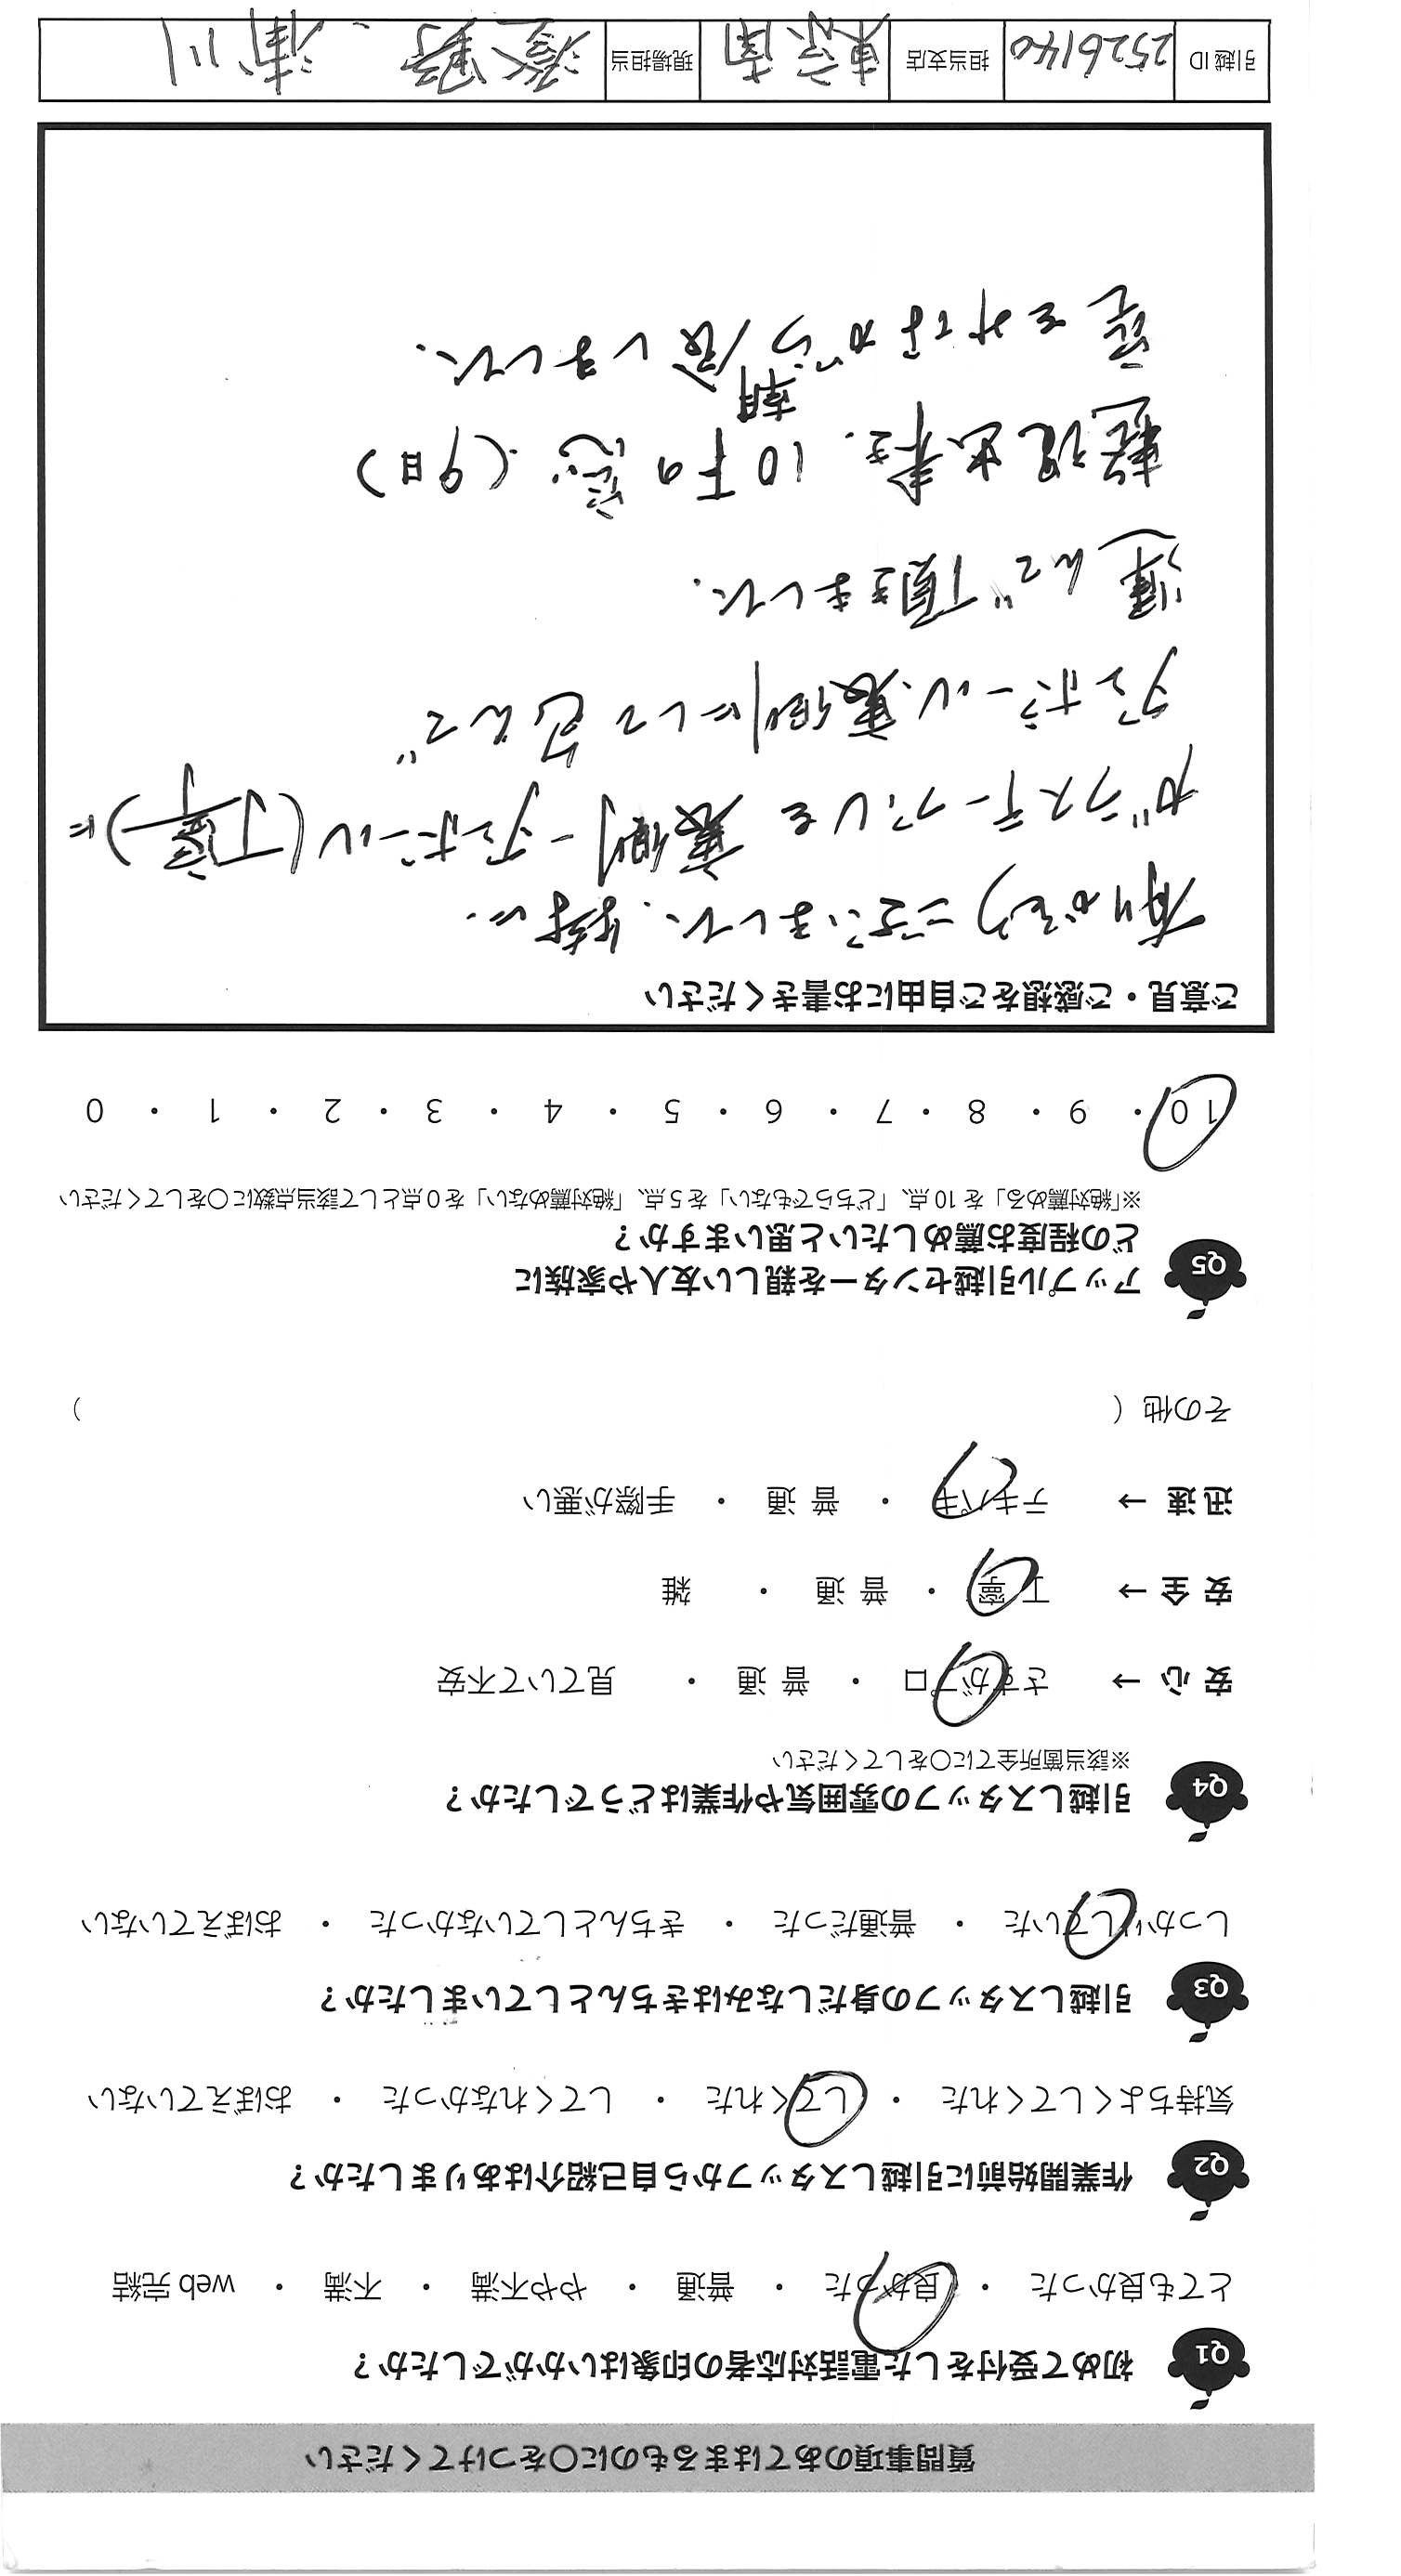 質問事項のあてはまるものに〇をつけてください
Q1 初めて受付をした電話対応者の印象はいかがでしたか？
とても良かった ・ 良かった ・ 普通 ・ やや不満 ・ 不満 ・ web 完結
Q2 作業開始前に引越しスタッフから自己紹介はありましたか？
気持ちよくしてくれた ・ してくれた ・ してくれなかった ・ おぼえていない
Q3 引越しスタッフの身だしなみはきちんとしていましたか？
しっかりしていた ・ 普通だった ・ きちんとしていなかった ・ おぼえていない
Q4 引越しスタッフの雰囲気や作業はどうでしたか？
※該当箇所全てに〇をしてください
安 心 → さすがプロ ・ 普 通 ・ 見ていて不安
安 全 → 丁寧 ・ 普 通 ・ 雑
迅 速 → テキパキ ・ 普 通 ・ 手際が悪い
その他（ ）
Q5 アップル引越センターを親しい友人や家族に
どの程度お薦めしたいと思いますか？
※「絶対薦める」を 10 点、「どちらでもない」を 5 点、「絶対薦めない」を 0 点として該当点数に〇をしてください
10 ・ 9 ・ 8 ・ 7 ・ 6 ・ 5 ・ 4 ・ 3 ・ 2 ・ 1 ・ 0
ご意見・ご感想をご自由にお書きください
有りがとうございました、特に、
ガラステーブルを裏側ーダンボール(丁寧)に
ダンボール、裏側にして包んで
運んで頂きました、
整理出来、10年の窓、(9日)
朝
空をみながら 涙しました、
引越 ID 2526140 担当支店 東京南 現場担当 澄野、浦川